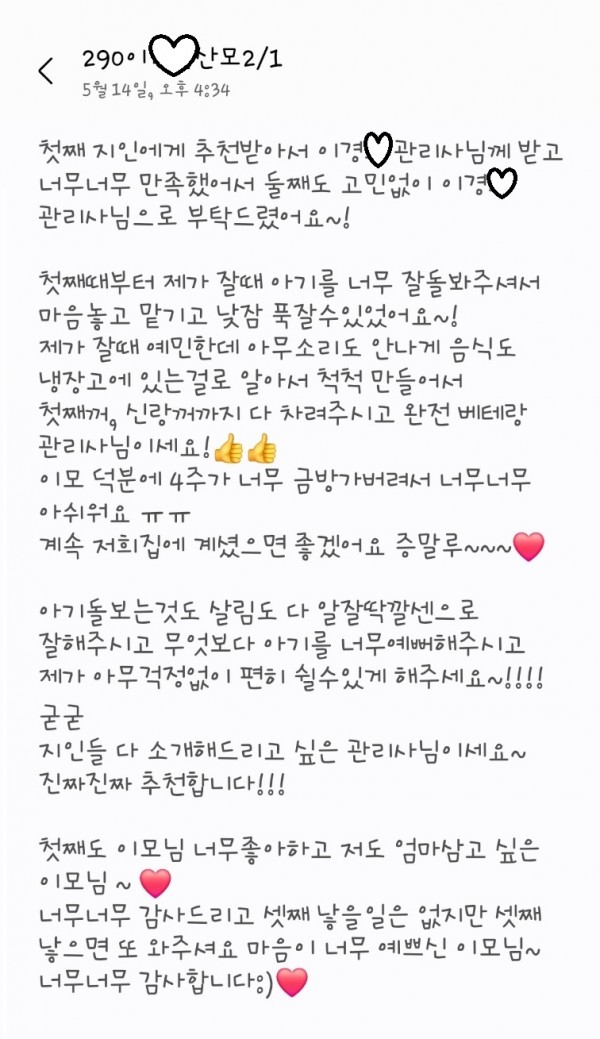 290이♡산모2/1
5월 14일, 오후 4:34
첫째 지인에게 추천받아서 이경♡관리사님께 받고
너무너무 만족했어서 둘째도 고민없이 이경♡
관리사님으로 부탁드렸어요~!
첫째때부터 제가 잘때 아기를 너무 잘돌봐주셔서
마음놓고 맡기고 낮잠 푹잘수있었어요~!
제가 잘때 예민한데 아무소리도 안나게 음식도
냉장고에 있는걸로 알아서 척척 만들어서
첫째꺼, 신랑꺼까지 다 차려주시고 완전 베테랑
관리사님이세요!👍👍
이모 덕분에 4주가 너무 금방가버려서 너무너무
아쉬워요 ㅠㅠ
계속 저희집에 계셨으면 좋겠어요 증말루~~~❤️
아기돌보는것도 살림도 다 알잘딱깔센으로
잘해주시고 무엇보다 아기를 너무예뻐해주시고
제가 아무걱정없이 편히 쉴수있게 해주세요~!!!!
굳굳
지인들 다 소개해드리고 싶은 관리사님이세요~
진짜진짜 추천합니다!!!
첫째도 이모님 너무좋아하고 저도 엄마삼고 싶은
이모님 ~ ❤️
너무너무 감사드리고 셋째 낳을일은 없지만 셋째
낳으면 또 와주셔요 마음이 너무 예쁘신 이모님~
너무너무 감사합니다:)❤️